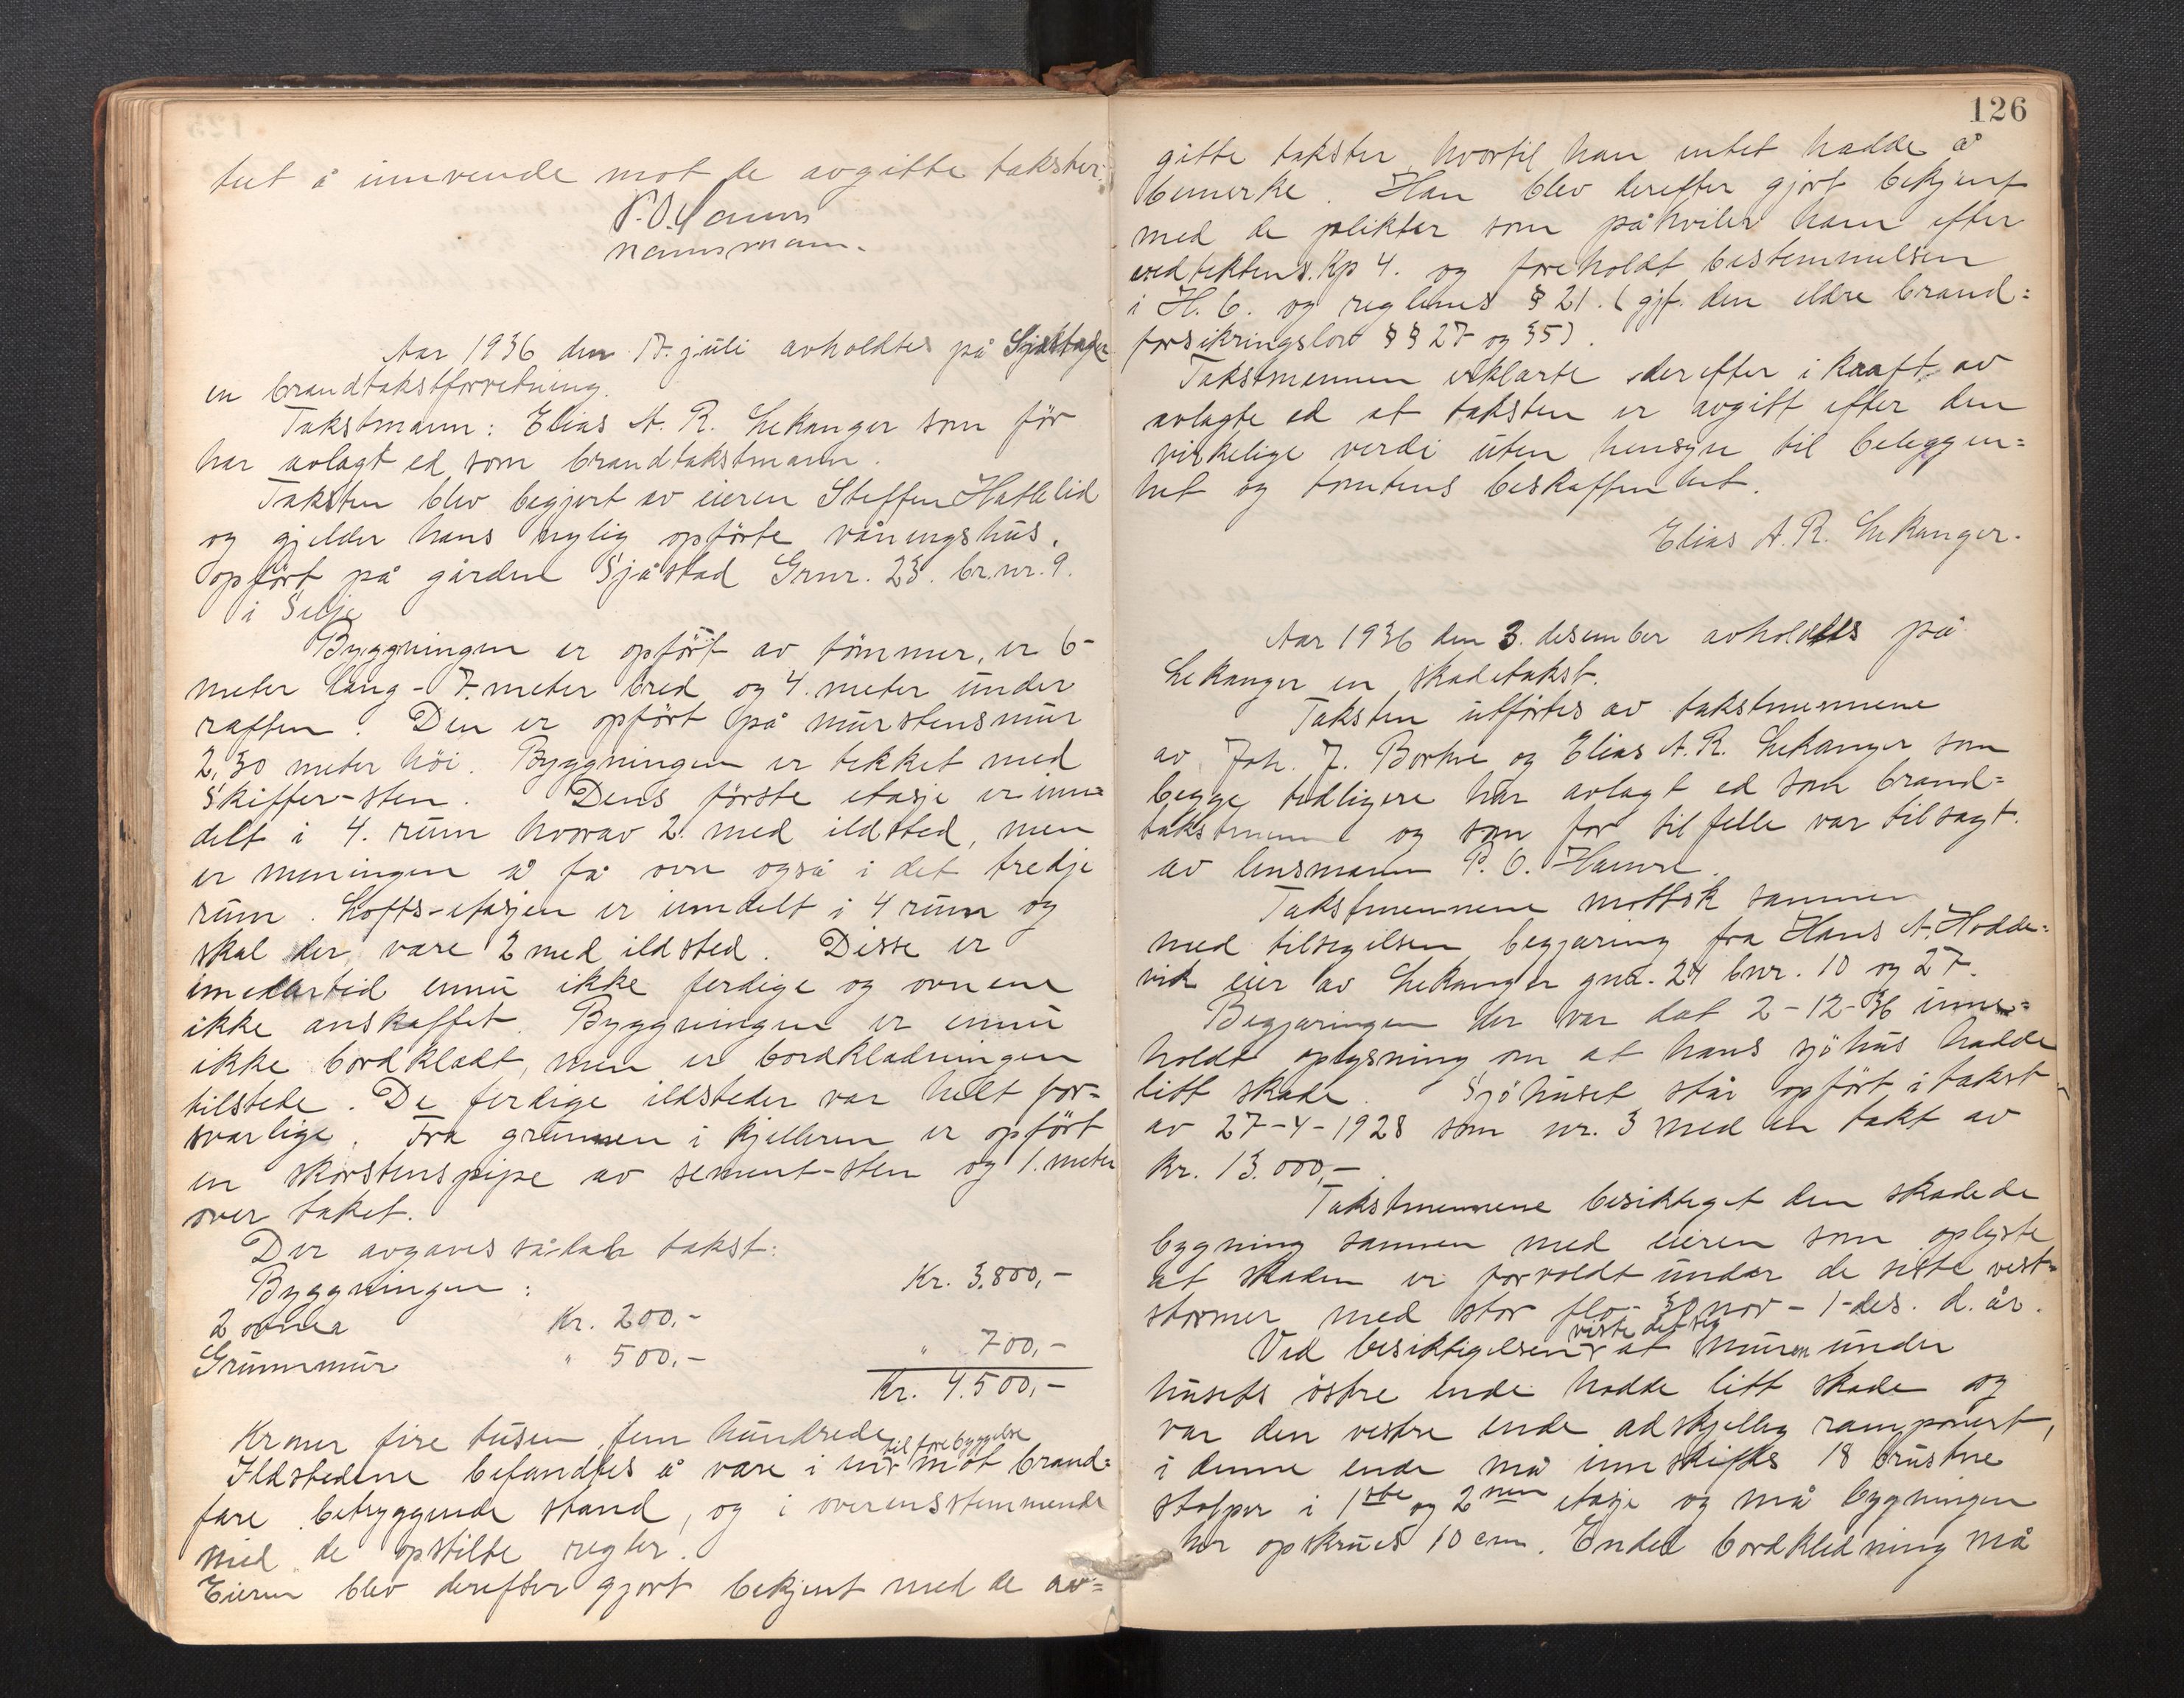 tet å innvende mot de avgitte takster.
P. O. Hamre
lensmann.
Aar 1936 den 17. juli avholdtes på Sjåstad
en brandtakstforretning.
Takstmann: Elias A. R. Lekanger som før
har avlagt ed som brandtakstmann.
Taksten blev begjert av eieren Steffen Hatlelid
og gjelder hans nylig opførte våningshus,
opført på gården Sjåstad Grnr. 23. br.nr. 9.
i Selje
Byggningen er opført av tømmer, er 6-
meter lang - 7. meter bred og 4. meter under
raften. Den er opført på murstensmur
2,30 meter höi. Byggningen er tekket med
Skiffer-sten. Dens første etasje er inn=
delt i 4. rum hvorav 2. med ildsted, men
er meningen å få ovn også i det tredje
rum. Lofts-etasjen er inndelt i 4 rum og
skal der være 2 med ildsted. Disse er
imedlertid ennu ikke ferdige og ovnene
ikke anskaffet. Byggningen er ennu
ikke bordklædt, men er bordklædningen
tilstede. De ferdige ildsteder var helt for-
svarlige. Fra grunnen i kjelleren er opført
en skorstenspipe av sement-sten og 1. meter
over taket.
Der avgaves sådan takst:
Byggningen : Kr. 3.800,-
2 ovner Kr. 200,-
Grunnmur " 500,- " 700,-
Kr. 4.500,-
Kroner fire tusen fem hundrede
til forebyggelse
Ildstedene befandtes å være i en mot brand=
fare betryggende stand, og i overensstemmende
med de opstilte regler.
Eieren blev derefter gjort bekjent med de av=
126
gitte takster, hvortil han intet hadde å
bemerke. Han blev derefter gjort bekjent
med de plikter som påhviler ham efter
vedtektens. Kp 4. og foreholdt bestemmelsen
i H. b. og reglenes § 21. (gjf. den eldre brand=
forsikringslov §§ 27 og 35).
Takstmannen erklærte derefter i kraft av
avlagte ed at taksten er avgitt efter den
virkelige verdi uten hensyn til beleggen=
het og tomtens beskaffenhet.
Elias A. R. Lekanger.
Aar 1936 den 3. desember avholdtes på
Lekanger en skadetakst.
Taksten utførtes av takstmennene
av Joh. J. Borkve og Elias A. R. Lekanger som
begge tidligere har avlagt ed som brand=
takstmenn og som for tilfelle var tilsagt
av lensmann P. O. Hamre.
Takstmennene mottok sammen
med tilsigelsen begjæring fra Hans A. Hodde=
vik eier av Lekanger gnr. 24 bnr. 10 og 27.
Begjæringen der var dat 2-12-36 inne=
holdt oplysning om at hans sjöhus hadde
litt skade. Sjöhuset står opført i takst
av 27-4-1928 som nr. 3 med en takt av
Kr. 13.000,-.
Takstmennene besiktiget den skadede
bygning sammen med eieren som oplyste
at skaden er forvoldt under de siste vest=
stormer med stor flo- 30 nov - 1-des. d. år.
viste det sig
Ved besiktigelsen at muren under
husets östre ende hadde litt skade og
var den vestre ende adskjellig ramponert,
i denne ende må innskiftes 18 brustne
stolper i 1ste og 2nen etasje og må bygningen
her opskrues 10 cm. Endel bordkledning må